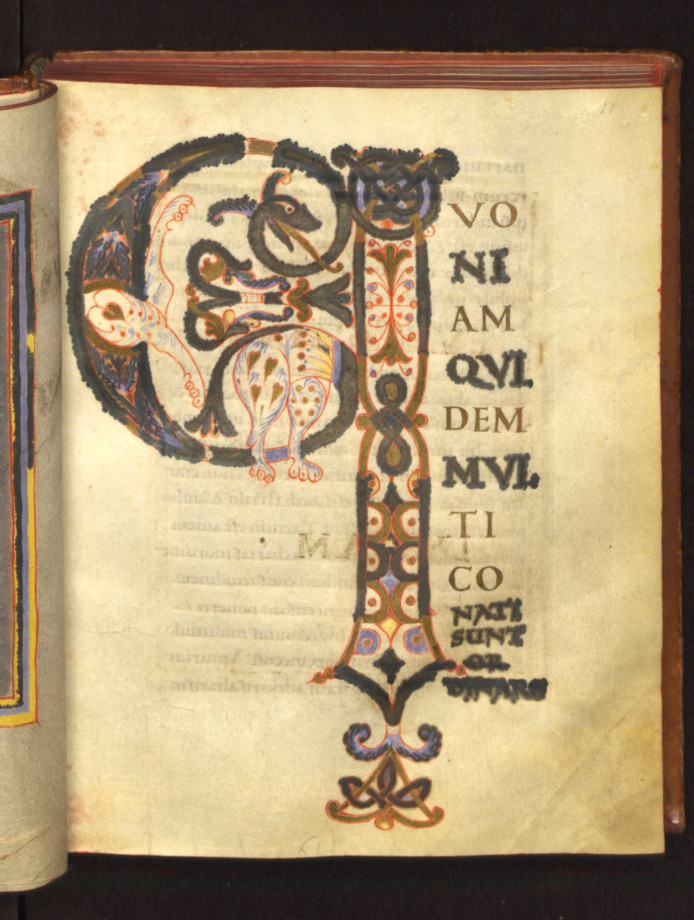 Q
VO
NI
AM
QVI
DEM
MVL
TI
CO
NATI
SUNT
OR
DINARE